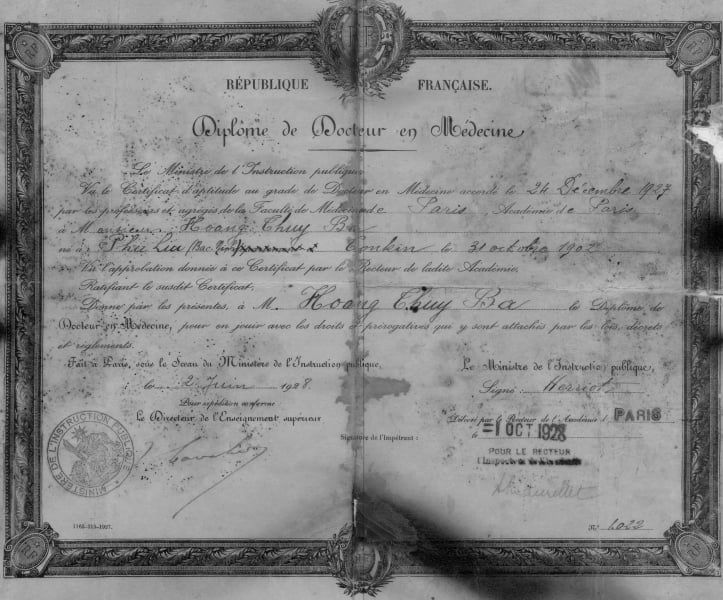 RÉPUBLIQUE FRANÇAISE.
Diplôme de Docteur en Médecine
Le Ministre de l'Instruction publique,
Vu le Certificat d'aptitude au grade de Docteur en Médecine accordé le 24 Décembre 1927
par les professeurs et agrégés de la Faculté de Médecine de Paris, Académie de Paris
à Monsieur Hoang Thuy Ba
né à Phu Luu (Bac Ninh) Tonkin le 31 octobre 1902
Vu l'approbation donnée à ce Certificat par le Recteur de ladite Académie.
Ratifiant le susdit Certificat.
Donne par les présentes, à M. Hoang Thuy Ba le Diplôme de
Docteur en Médecine, pour en jouir avec les droits et prérogatives qui y sont attachés par les lois, décrets
et règlements.
Fait à Paris, sous le Sceau du Ministère de l'Instruction publique,
le 2 Juin 1928
Pour expédition conforme
Le Directeur de l'Enseignement supérieur
MINISTÈRE DE L'INSTRUCTION PUBLIQUE
Signature de l'Impétrant :
Le Ministre de l'Instruction publique,
Signé : Herriot
Délivré par le Recteur de l'Académie d PARIS
le -1 OCT 1928
POUR LE RECTEUR
l'Inspecteur de l'Académie
1162-315-1927.
N° 6022